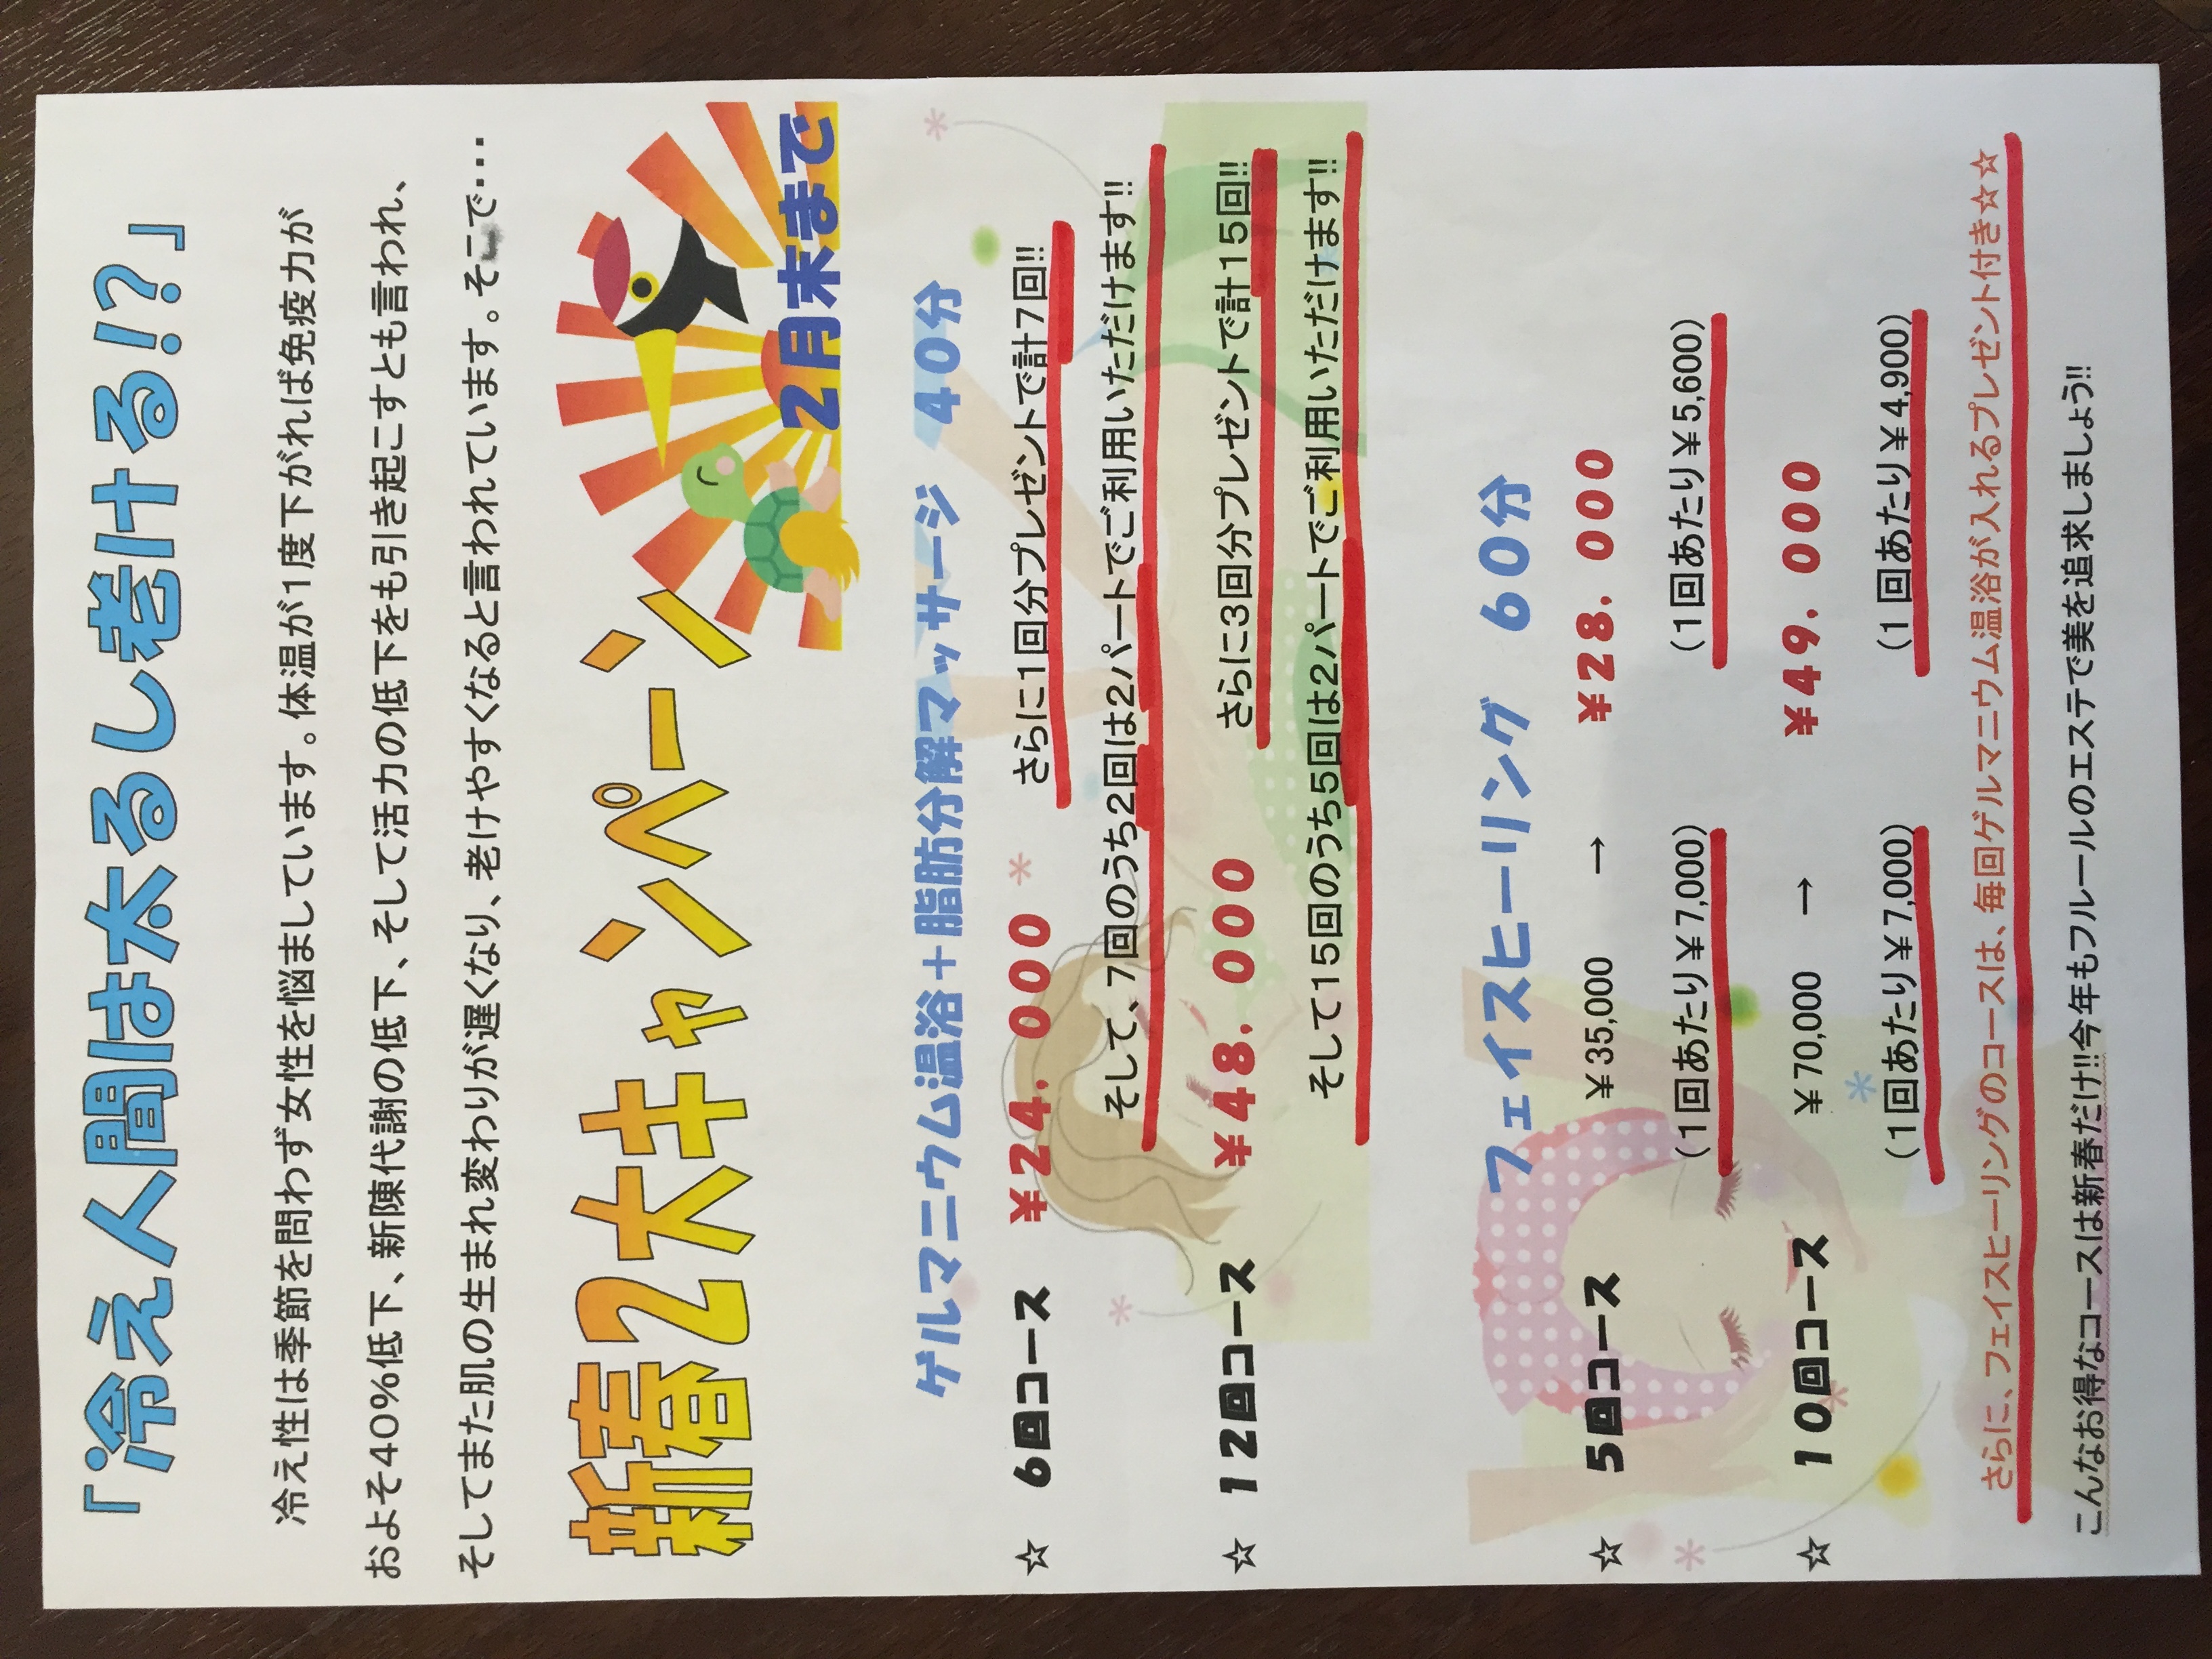 「冷え人間は太るし老ける!?」
冷え性は季節を問わず女性を悩ましています。体温が1度下がれば免疫力が
およそ40%低下、新陳代謝の低下、そして活力の低下をも引き起こすとも言われ、
そしてまた肌の生まれ変わりが遅くなり、老けやすくなると言われています。そこで・・・
新春2大キャンペーン
2月末まで
ゲルマニウム温浴+脂肪分解マッサージ 40分
☆ 6回コース ¥24,000 さらに1回分プレゼントで計7回!!
そして、7回のうち2回は2パートでご利用いただけます!!
☆ 12回コース ¥48,000 さらに3回分プレゼントで計15回!!
そして15回のうち5回は2パートでご利用いただけます!!
フェイスヒーリング 60分
☆ 5回コース ¥35,000 → ¥28,000
(1回あたり¥7,000) (1回あたり¥5,600)
☆ 10回コース ¥70,000 → ¥49,000
(1回あたり¥7,000) (1回あたり¥4,900)
さらに、フェイスヒーリングのコースは、毎回ゲルマニウム温浴が入れるプレゼント付き☆☆
こんなお得なコースは新春だけ!!今年もフルールのエステで美を追求しましょう!!